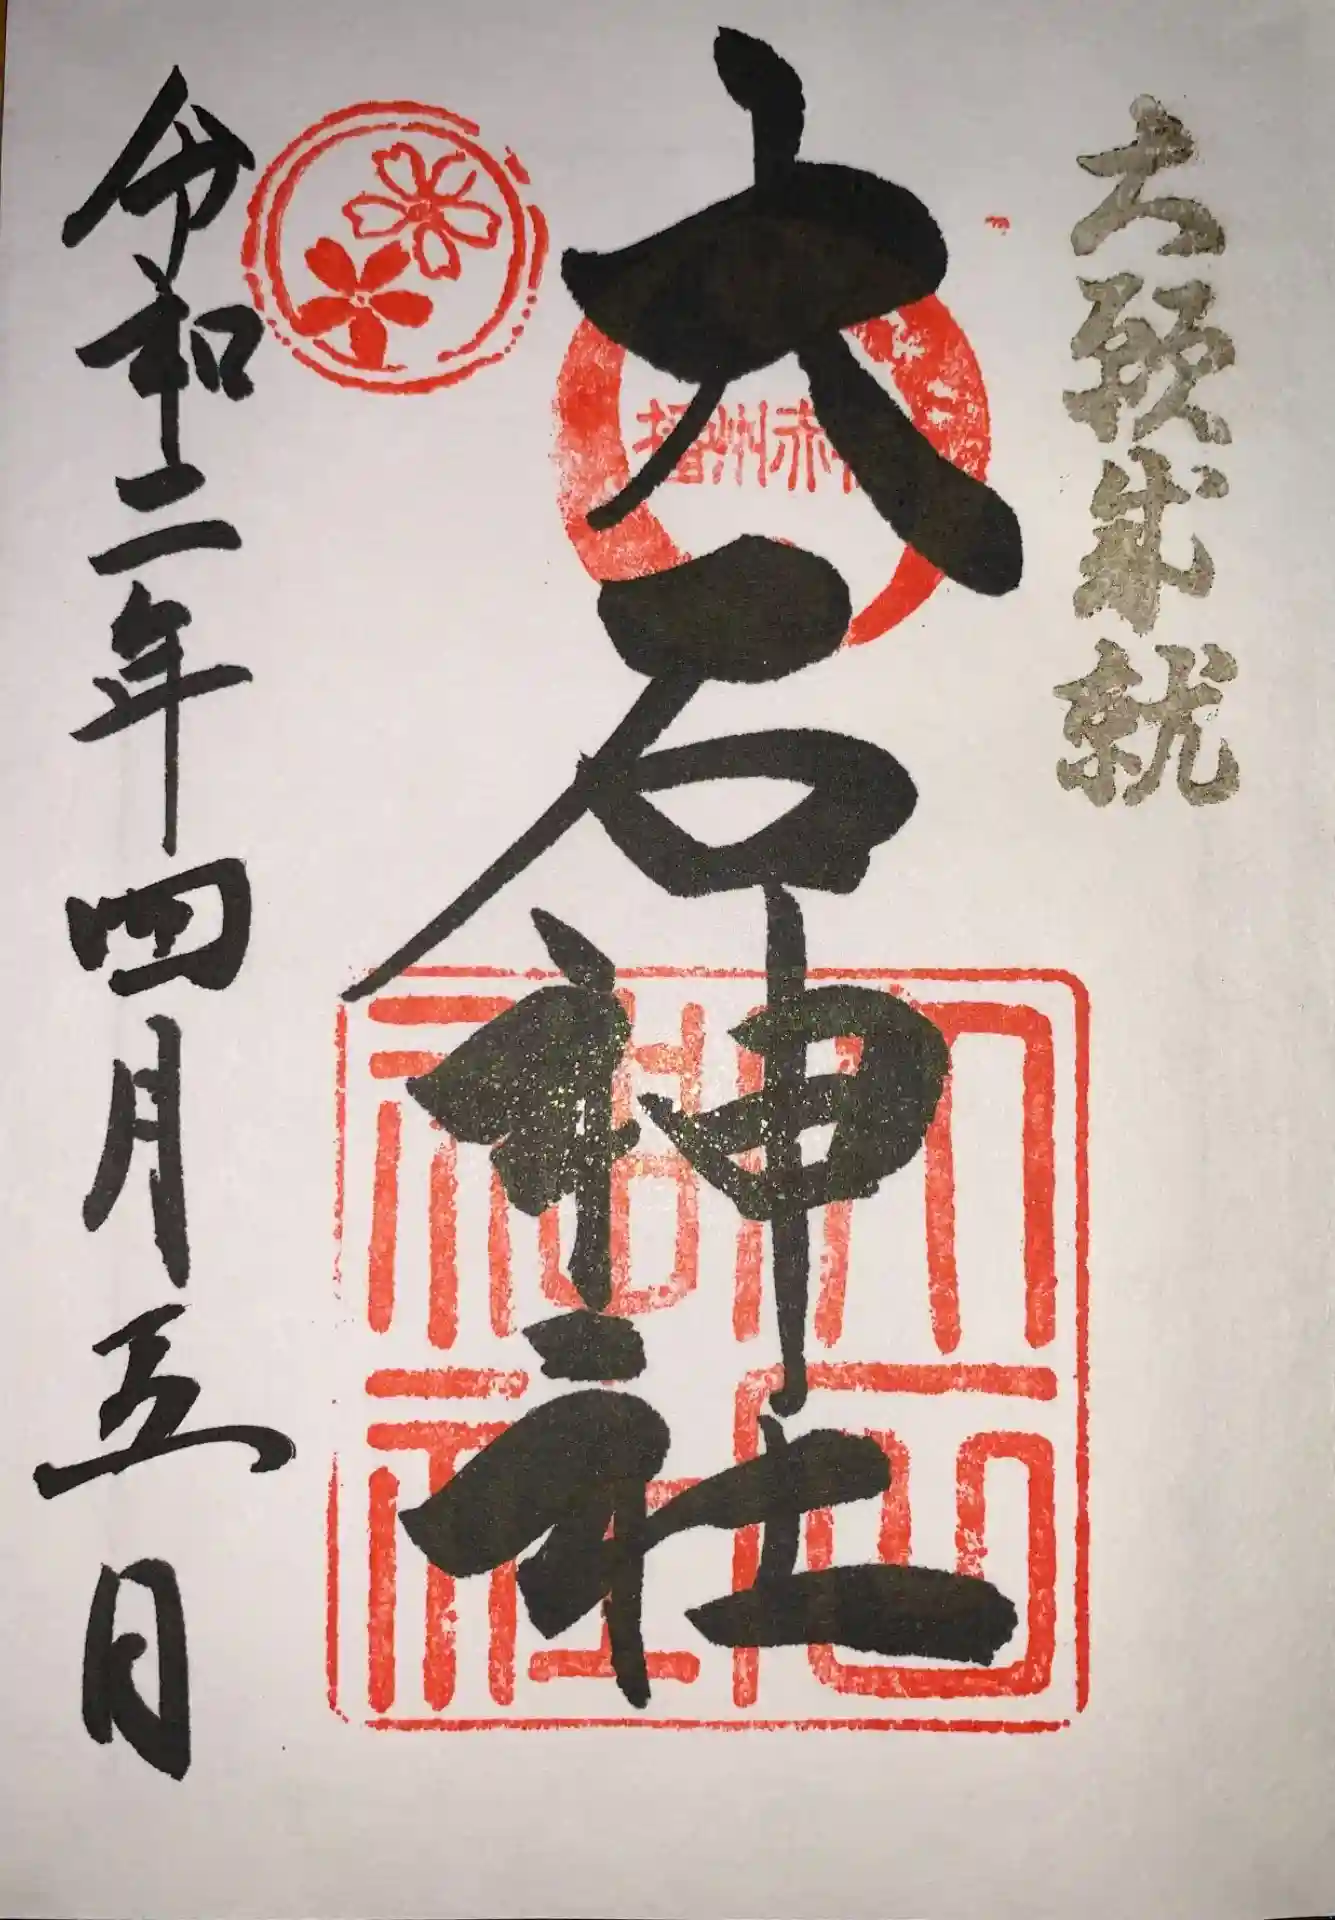 大願成就
大石神社
播州赤
大石神社
令和二年四月五日